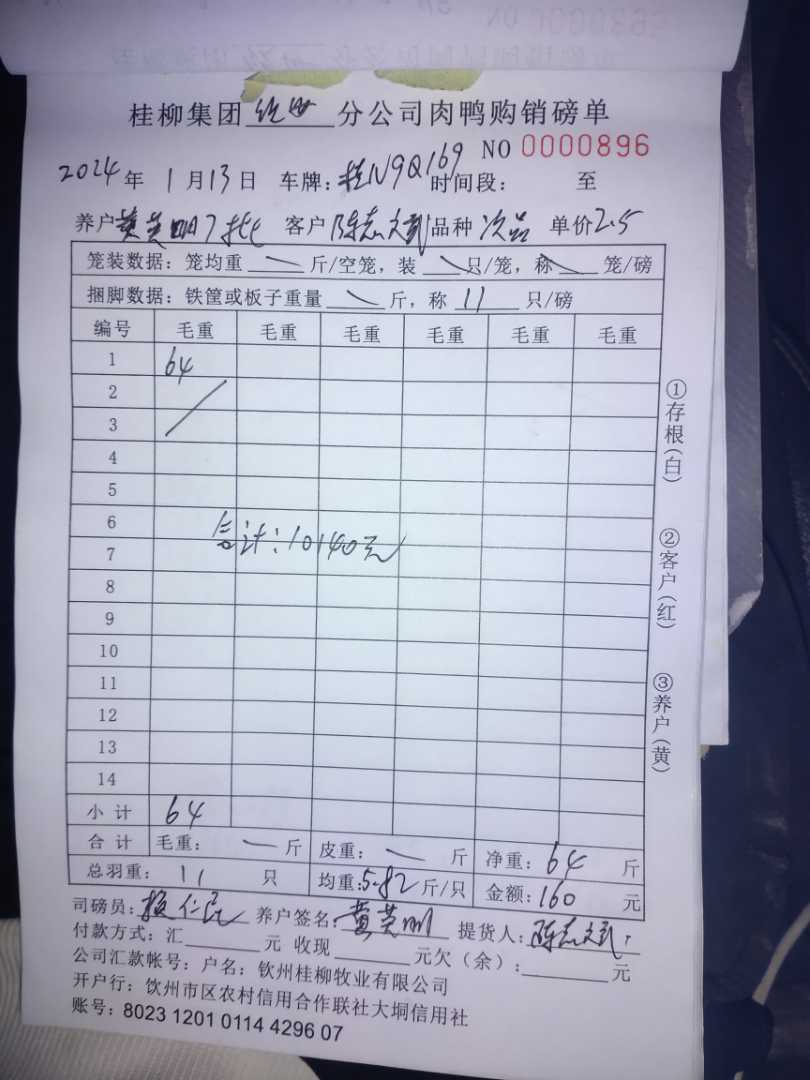 桂柳集团 钦州 分公司肉鸭购销磅单
NO 0000896
2024年 1月13日 车牌:桂N9Q169 时间段: 至
养户 黄英明7批 客户 陈志文武 品种 次品 单价 2.5
笼装数据: 笼均重 斤/空笼, 装 只/笼, 称 笼/磅
捆脚数据: 铁筐或板子重量 斤, 称 11 只/磅
编号 毛重 毛重 毛重 毛重 毛重 毛重
1 64
2
3
4
5
6
合计:10140元
7
8
9
10
11
12
13
14
小计 64
合计 毛重: 斤 皮重: 斤 净重: 64 斤
总羽重: 11 只 均重:5.82斤/只 金额:160 元
司磅员: 仁民 养户签名: 黄英明 提货人: 陈志文武
付款方式: 汇 元 收现 元欠(余): 元
公司汇款帐号: 户名: 钦州桂柳牧业有限公司
开户行: 钦州市区农村信用合作联社大垌信用社
账号: 8023 1201 0114 4296 07
①存根(白) ②客户(红) ③养户(黄)